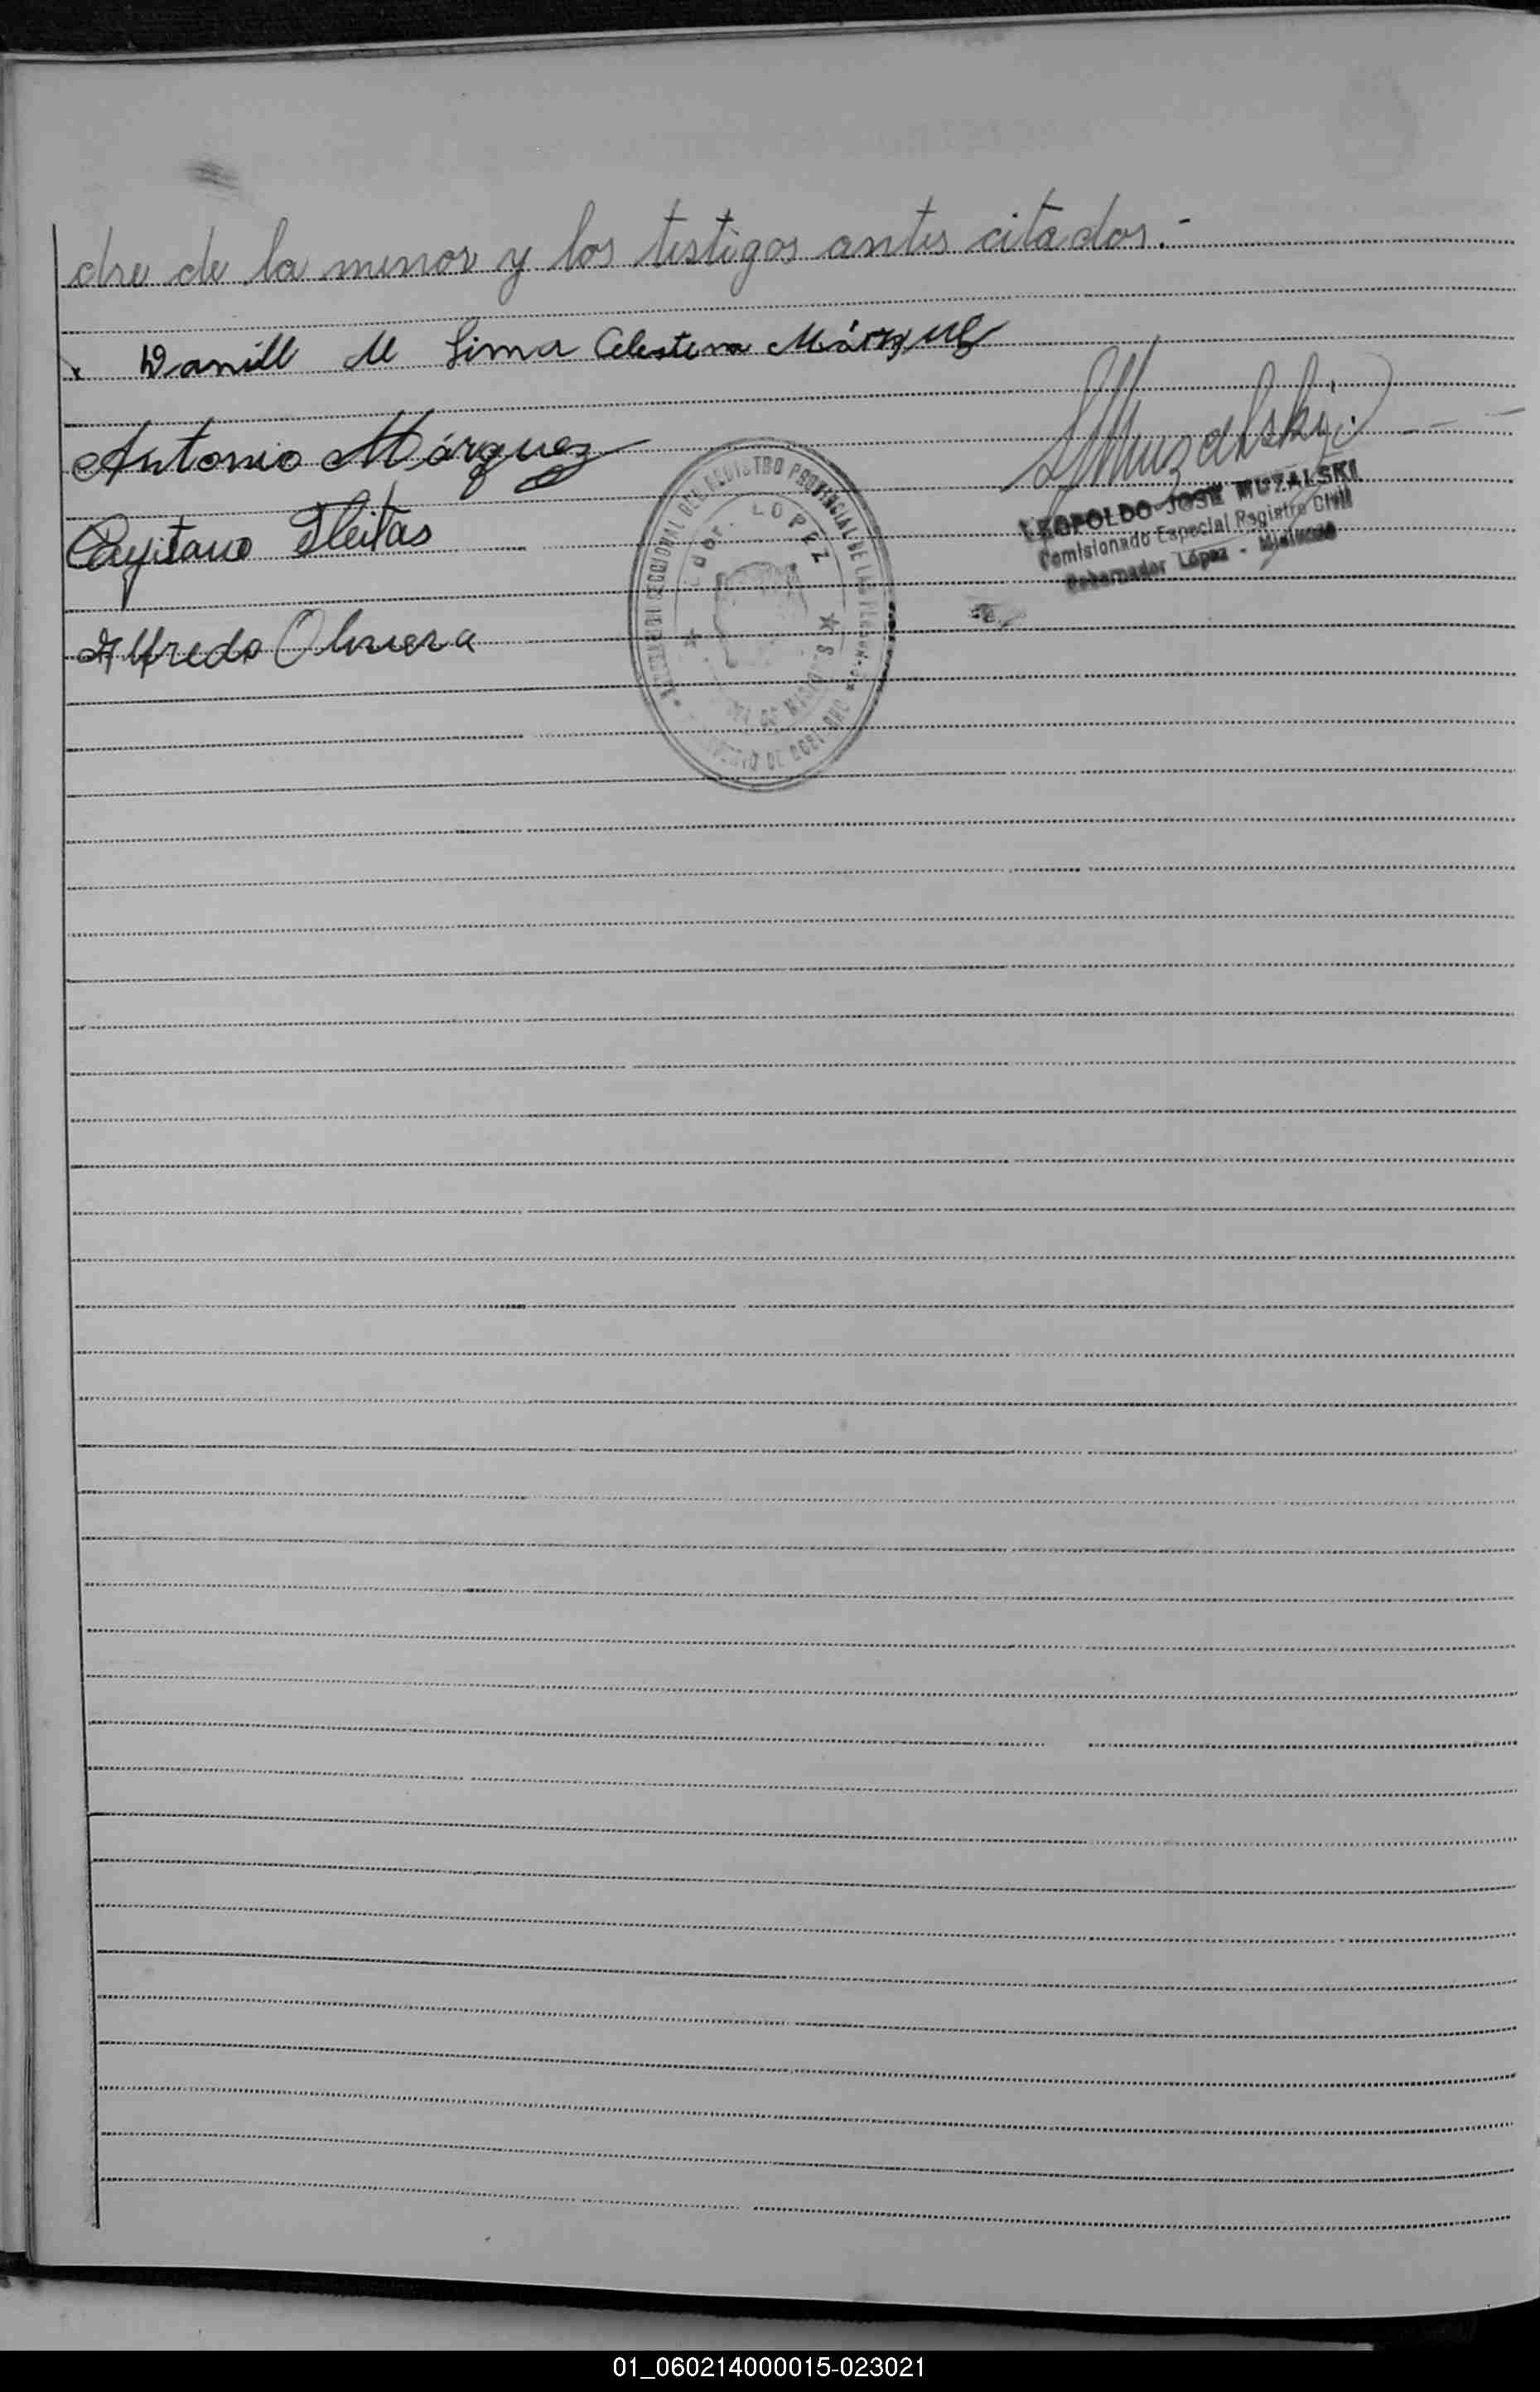 dre de la menor y los testigos antes citados.-
x Daniel de Lima Celestina Márquez
LMuzalski
Antonio Márquez
LEOPOLDO JOSE MUZALSKI
Comisionado Especial Registro Civil
Gobernador López - Misiones
Cayitano Fleitas
Alfredo Olivera
SECCIONAL DEL REGISTRO PROVINCIAL DE LAS PERSONAS
Gdor. LOPEZ
MISIONES
01_060214000015-023021